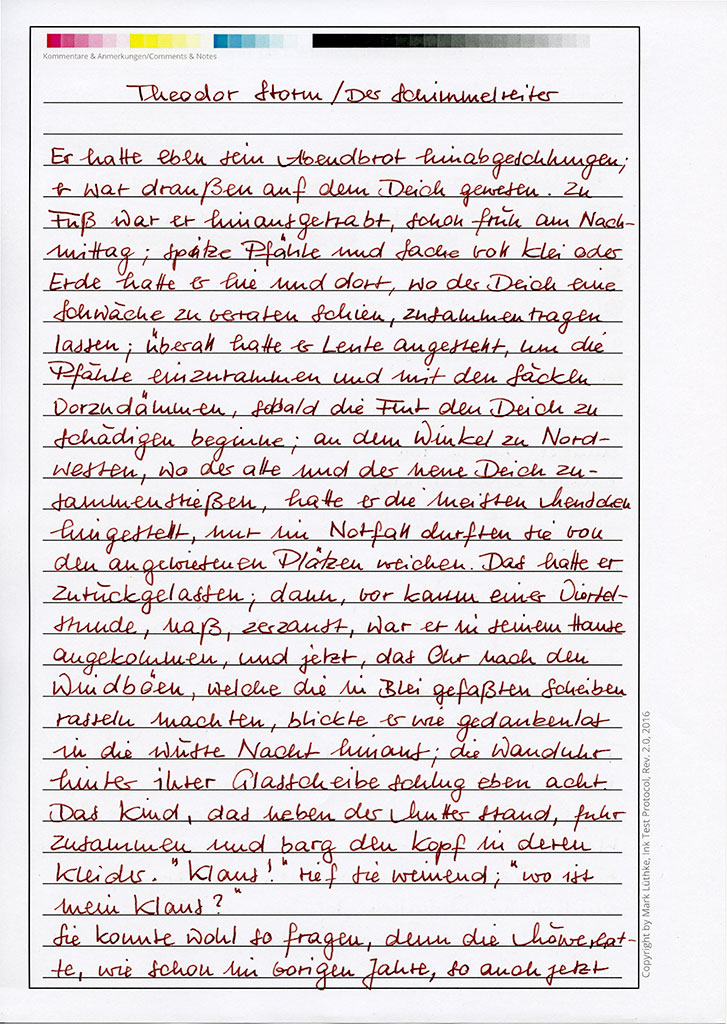 Kommentare & Anmerkungen/Comments & Notes
Theodor Storm / Der Schimmelreiter
Er hatte eben sein Abendbrot hinabgeschlungen;
er war draußen auf dem Deich gewesen. Zu
Fuß war er hinausgetrabt, schon früh am Nach-
mittag; spitze Pfähle und Säcke voll Klei oder
Erde hatte er hie und dort, wo der Deich eine
Schwäche zu verraten schien, zusammentragen
lassen; überall hatte er Leute angestellt, um die
Pfähle einzurammen und mit den Säcken
vorzudämmen, sobald die Flut den Deich zu
schädigen beginne; an dem Winkel zu Nord-
westen, wo der alte und der neue Deich zu-
sammenstießen, hatte er die meisten Menschen
hingestellt, nur im Notfall durften sie von
den angewiesenen Plätzen weichen. Das hatte er
zurückgelassen; dann, vor kaum einer Viertel-
stunde, naß, zerzaust, war er in seinem Hause
angekommen, und jetzt, das Ohr nach den
Windböen, welche die in Blei gefaßten Scheiben
rasseln machten, blickte er wie gedankenlos
in die wüste Nacht hinaus; die Wanduhr
hinter ihrer Glasscheibe schlug eben acht.
Das Kind, das neben der Mutter stand, fuhr
zusammen und barg den Kopf in deren
Kleider. "Klaus!" rief sie weinend; "wo ist
mein Klaus?"
Sie konnte wohl so fragen, denn die Möwe hat-
te, wie schon im vorigen Jahre, so auch jetzt
Copyright by Mark Lüthke, Ink Test Protocol, Rev. 2.0, 2016